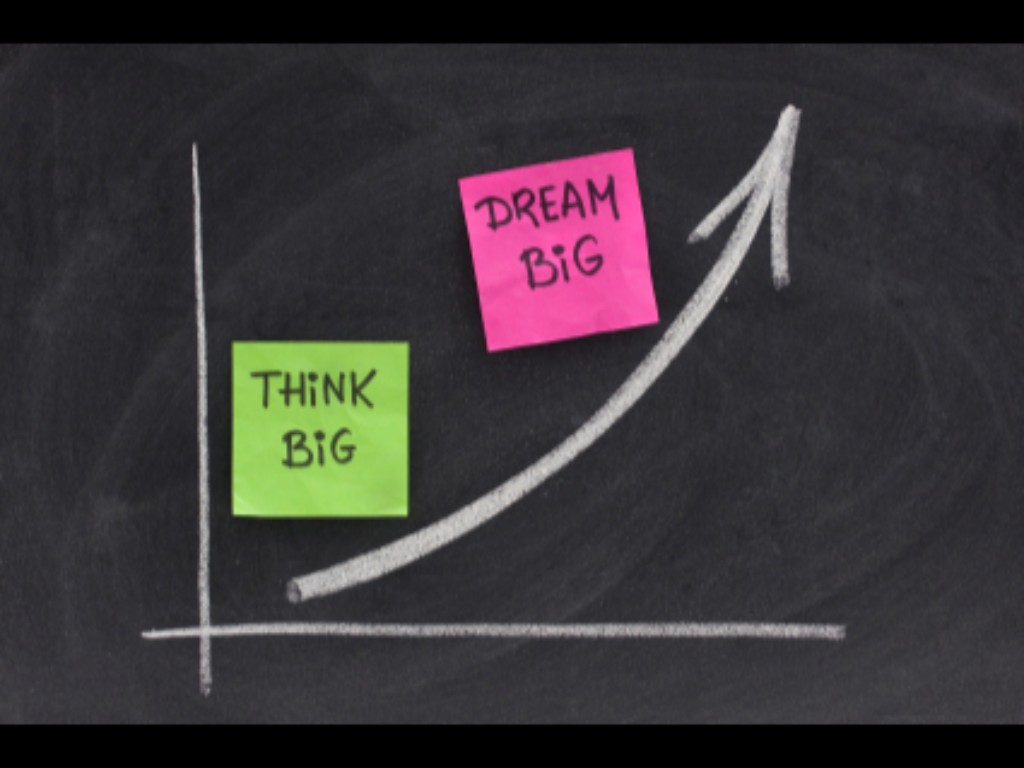 DREAM
BiG
THiNK
BiG